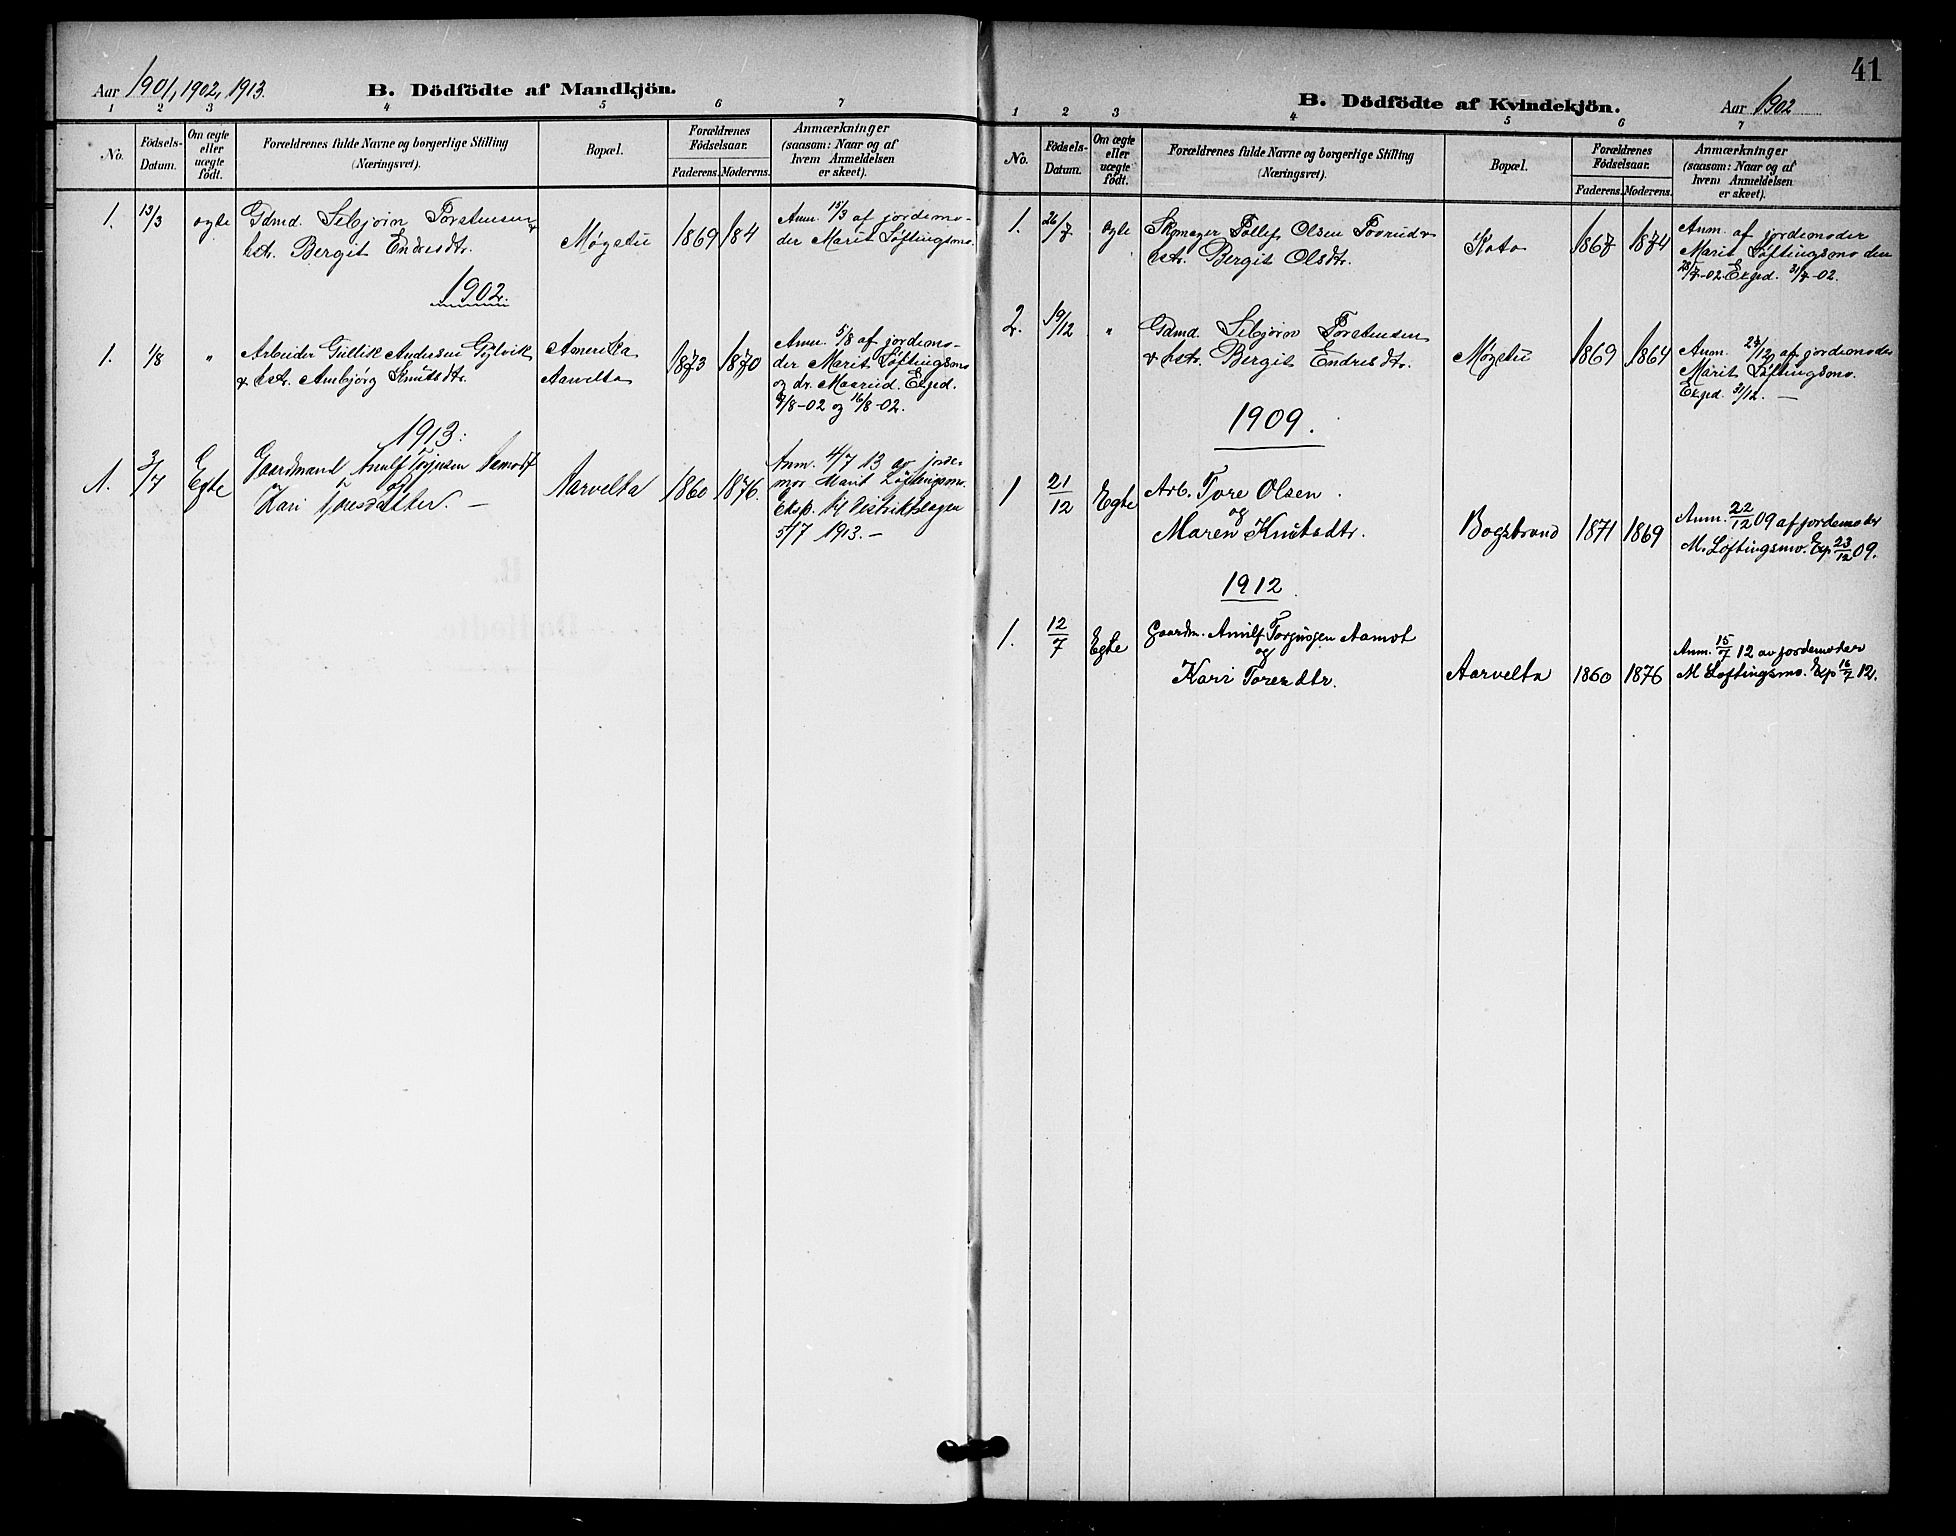 Aar 1901, 1902, 1913.
B. Dödfödte af Mandkjön.
1 2 3 4 5 6 7
No.
Födsels-Datum.
Om ægte eller uægte födt.
Forældrenes fulde Navne og borgerlige Stilling (Næringsvei).
Bopæl.
Forældrenes Födselsaar.
Faderens. Moderens.
Anmærkninger
(saasom: Naar og af
hvem Anmeldelsen
er skeet).
1. 13/3 ægte Gdmd. Sebjörn Torstensen &
hstr. Bergit Endresdtr. Møgstu 1869 184
Anm. 15/3 af jordemo-
der Marit Løftingsmo.
1902.
1. 1/8 " Arbeider Gullik Andersen Gjelvik
& hstr. Ambjörg Knutsdtr.
Amerika
Aarvelta
1873 1870
Anm. 5/8 af jordemo-
der Marit Løftingsmo
og dr. Maarud. Exped.
9/8-02 og 16/8-02.
1913.
1. 3/7 Egte Gaardmand Anulf Torjusen Aamodt
og
Kari Toresdatter. —
Aarvelta 1860 1876.
Anm. 4/7 13 av jorde-
mor Marit Løftingsmo.
Eksp. til Distriktslægen
5/7 1913. —
41
B. Dödfödte af Kvindekjön.
Aar 1902
1 2 3 4 5 6 7
No.
Födsels-Datum.
Om ægte eller uægte födt.
Forældrenes fulde Navne og borgerlige Stilling (Næringsvei).
Bopæl.
Forældrenes Födselsaar.
Faderens. Moderens.
Anmærkninger
(saasom: Naar og af
hvem Anmeldelsen
er skeet).
1. 26/7 ægte Skomager Tollef Olsen Tovrud &
hstr. Bergit Olsdtr. Kata 1867 1874
Anm. af jordemoder
Marit Løftingsmo den
28/7-02. Exped. 31/7-02.
2. 19/12 " Gdmd. Sebjörn Torstensen
& hstr. Bergit Endresdtr. Møgstu 1869 1864
Anm. 23/12 af jordemoder
Marit Løftingsmo.
Exped. 31/12. —
1909.
1 21/12 Egte Arb. Tore Olsen
og
Maren Knutsdtr. Bogstrand 1871 1869
Anm. 22/12 09 af jordemoder
M. Løftingsmo. Exp. 23/12 09.
1912
1. 12/7 Egte Gaardm. Anulf Torjusen Aamot
og
Kari Toresdtr. Aarvelta 1860 1876
Anm. 15/7 12 av jordemoder
M Løftingsmo. Exp 16/7 12.